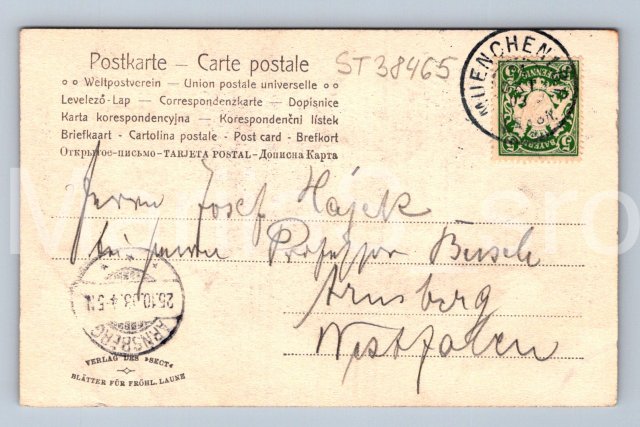 Postkarte — Carte postale
ST38465
◦ ◦ Weltpostverein — Union postale universelle ◦ ◦
Levelező-Lap — Correspondenzkarte — Dopisnice
Karta korespondencyjna — Korespondenční lístek
Briefkaart - Cartolina postale - Post card - Brefkort
Открытое-письмо-TARJETA POSTAL-Дописна Карта
MUENCHEN
5
BAYERN
5
Herrn Josef Hájek
bei Professor Busch
Arnsberg
Westfalen
25.10.03.4-5N
ARNSBERG
VERLAG DES »SECT«
BLÄTTER FÜR FRÖHL. LAUNE